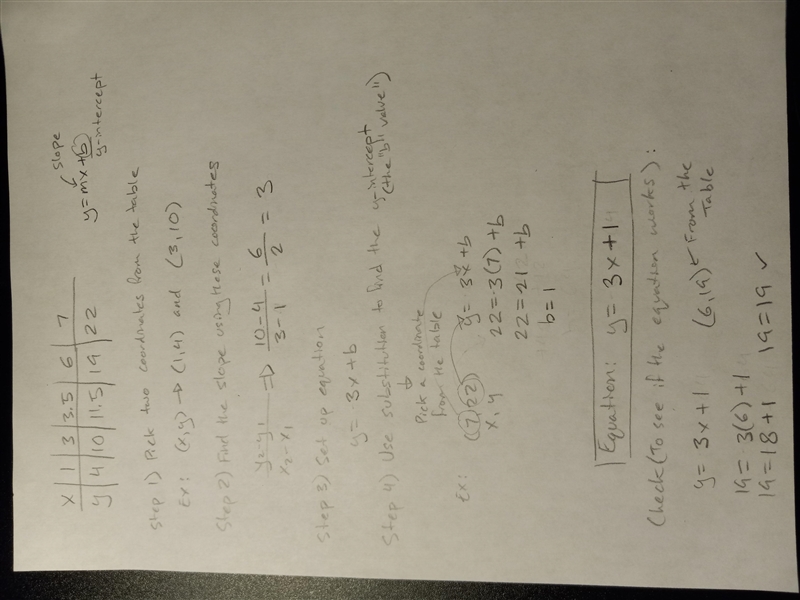 x | 1 | 3 | 3.5 | 6 | 7
y | 4 | 10 | 11.5 | 19 | 22
slope
y=mx+b
y-intercept
Step 1) Pick two coordinates from the table
Ex: (x,y) → (1,4) and (3,10)
Step 2) Find the slope using these coordinates
y2-y1 / x2-x1 ⇒ 10-4 / 3-1 = 6 / 2 = 3
Step 3) Set up equation
y=3x+b
Step 4) Use substitution to find the y-intercept
(the "b" value")
Pick a coordinate
from the table
Ex: (7,22)
x, y
y=3x+b
22=3(7)+b
22=21+b
b=1
Equation: y=3x+1
Check (To see if the equation works):
y=3x+1 (6,19) ← From the
Table
19=3(6)+1
19=18+1 19=19 ✓